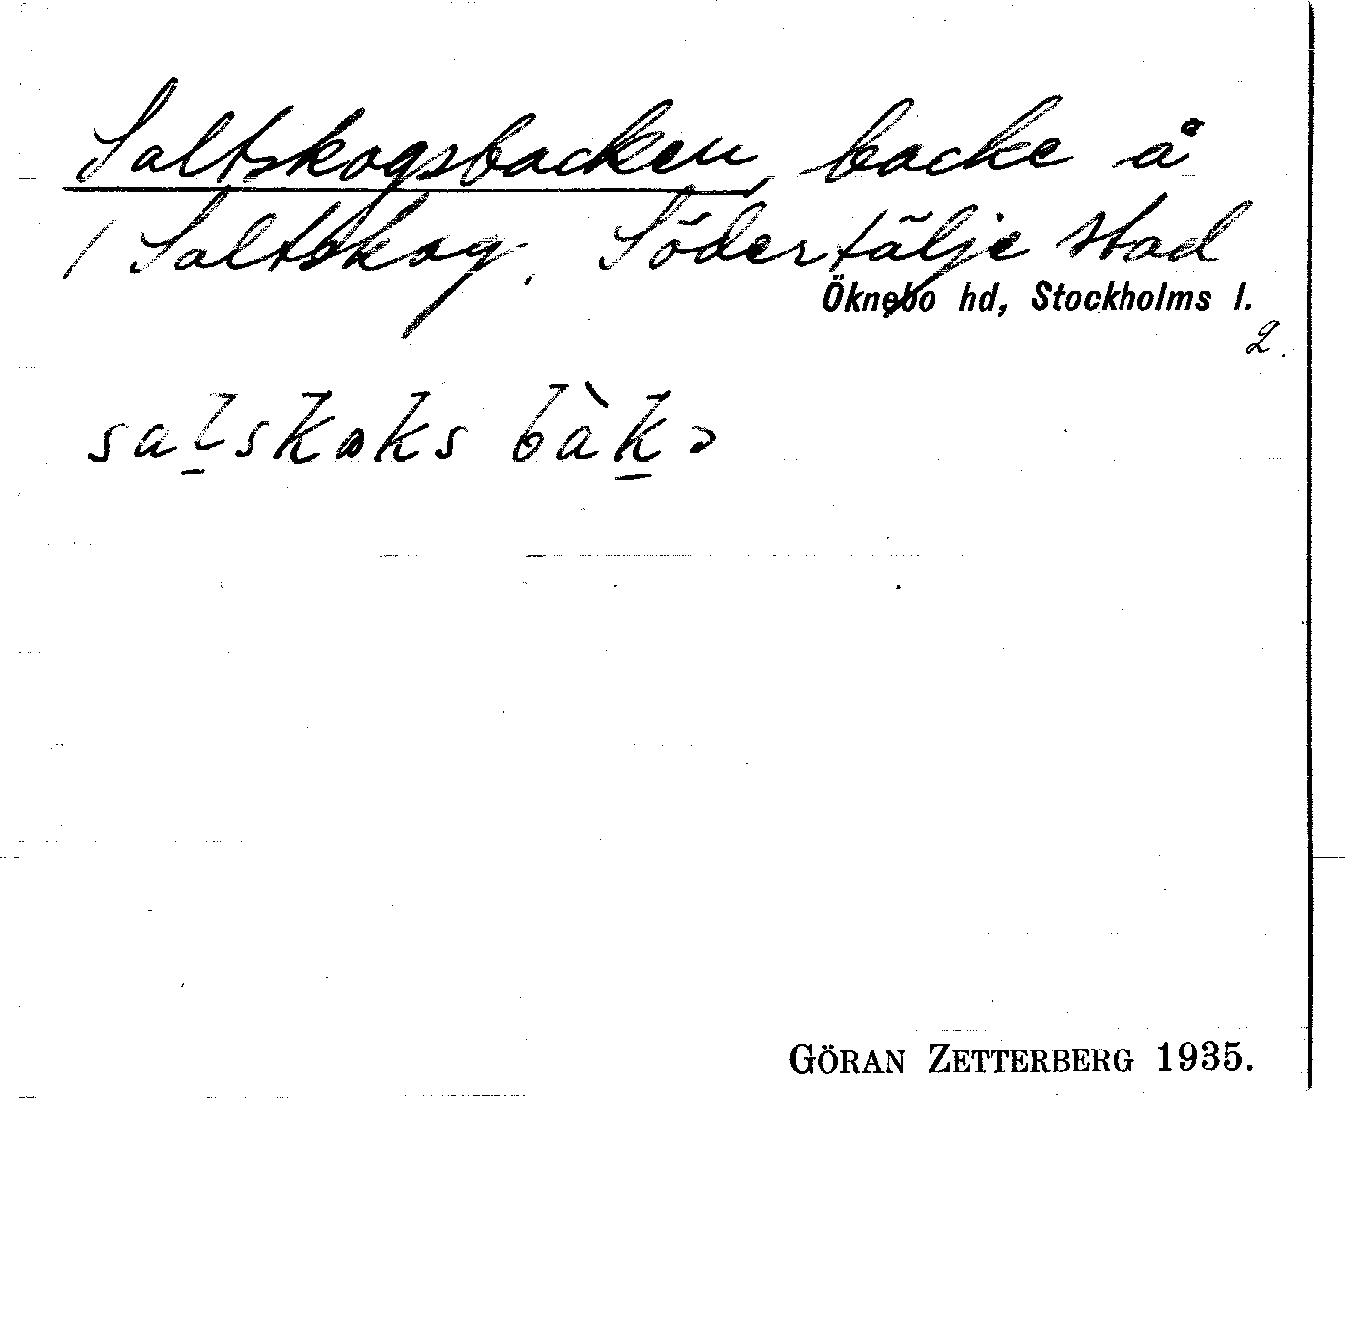 Saltskogsbacken, backe å
/ Saltskog. Södertälje stad
Öknebo hd, Stockholms l.
2.
sal̠skɒks bàk̠ə
GÖRAN ZETTERBERG 1935.